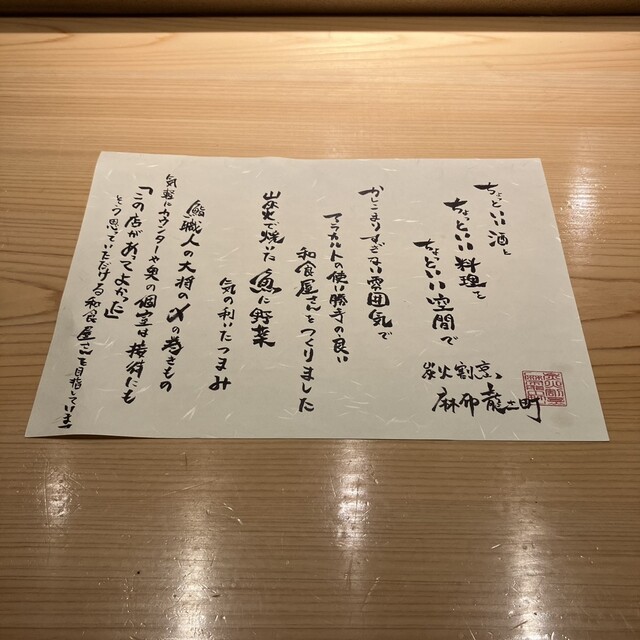 ちょどいい酒と
ちょっといい料理を
ちょどいい空間で
炭火割烹
麻布龍土町
かしこまりすぎない雰囲気で
アラカルトの使い勝手の良い
和食屋さんをつくりました
炭火で焼いた魚に野菜
気の利いたつまみ
鮨職人の大将の〆の巻きもの
気軽にカウンターや奥の個室は接待にも
「この店があってよかった」
そう思っていただける和食屋さんを目指しています